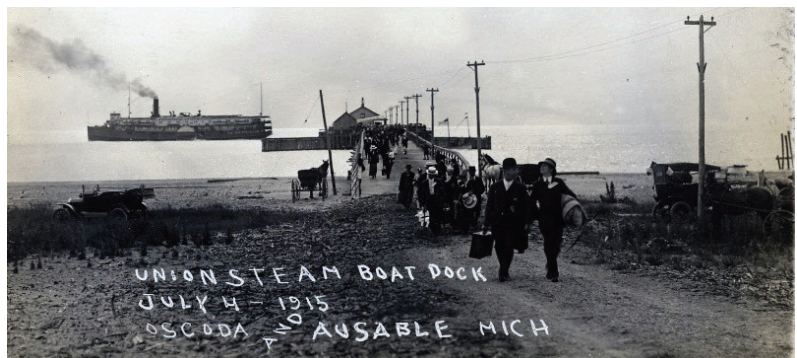 UNION STEAM BOAT DOCK
JULY 4 - 1915
OSCODA AND AUSABLE MICH